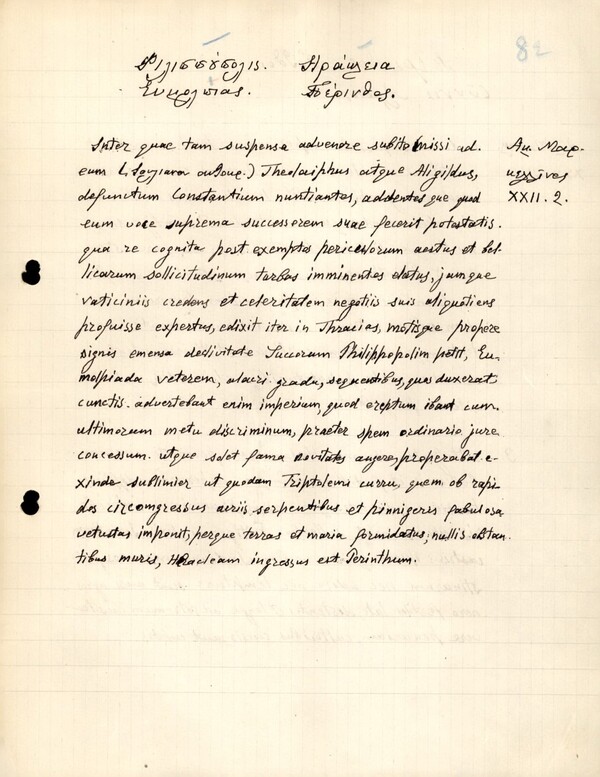 82
Φιλιππούπολις. Ηράκλεια
Ευμολπιας. Πέρινθος.
Inter quae tam suspensa advenere subito missi ad
eum Theolaiphus atque Aligildus,
defunctum Constantium nuntiantes, addentesque quod
eum voce suprema successorem suae fecerit potestatis.
qua re cognita post exemptos periculorum aestus et bel-
licarum sollicitudinum turbas imminentes elatus, jamque
vaticiniis credens et celeritatem negotiis suis aliquotiens
profuisse expertus, edixit iter in Thracias, motisque propere
signis emensa declivitate Succorum Philippopolim petit, Eu-
molpiada veterem, alacri gradu, sequentibus, quos duxerat
cunctis. advertebant enim imperium, quod ereptum ibant cum
ultimorum metu discriminum, praeter spem ordinario jure
concessum. utque solet fama novitates augere, properabat e-
xinde sublimior ut quodam Triptolemi curru, quem ob rapi-
dos circumgressus aeriis serpentibus et pinnigeris fabulosa
vetustas imponit, perque terras et maria formidatus, nullis obstan-
tibus muris, Heracleam ingressus est Perinthum.
Αμ. Μαρ-
κελλίνος
XXII. 2.